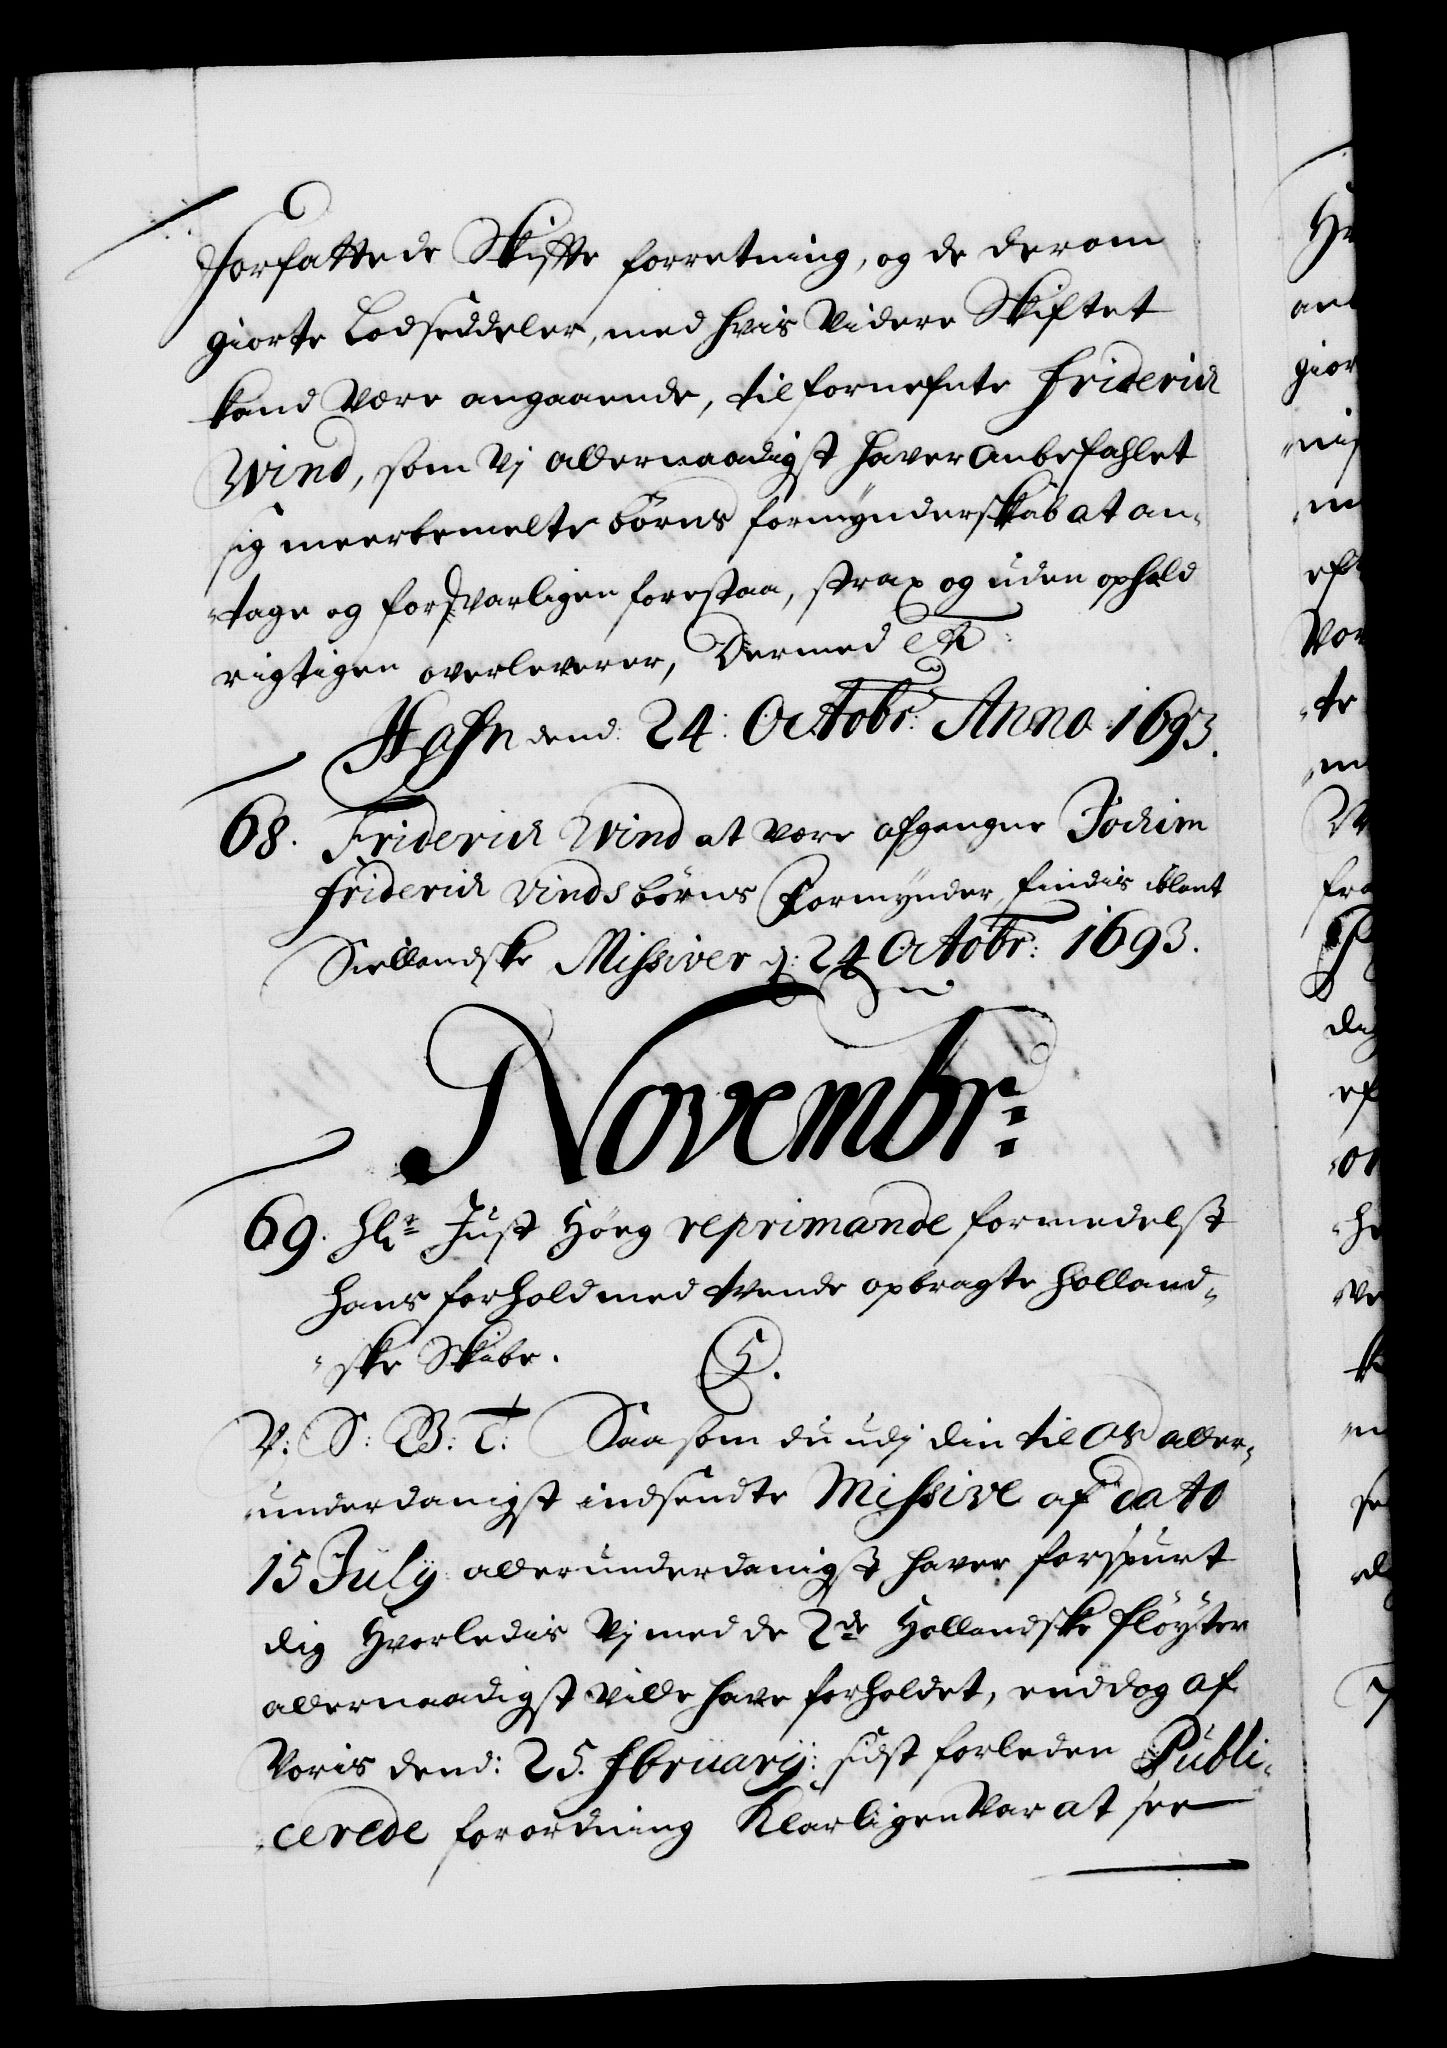 Forfattede Skifte forretning, og de derom
giorte Lodseddeler, med hvis Videre Skiftet
kand Være angaaende, til fornefnte Friderich
Wind, som Vj allernaadigst haver anbefahlet
sig meerbemelte børns formynderskab at an-
-tage og forsvarligen forestaa, strax og uden ophold
rigtigen overleverer, Dermed Etc:
Hafn dend: 24: Octobr: Anno 1693.
68. Friderich Wind at være afgangne Jochim
Friderich Vinds børns Formynder, findis iblant
Siellandske Missiver d: 24 Octobr: 1693.
Novembr:
69. Hr Just Høeg reprimande formedelst
hans forhold med tvende opbragte Holland-
-ske Skibe. C5.
V: S: B: T: Saasom du udj din til os aller-
-underdanigst indsendte Missive af dato
15 July allerunderdanigst haver forspurt
dig Hvorledis Vj med de 2de Hollandske fløyter
allernaadigst Ville have forholdet, enddog af
Voris dend: 25. Fbruarij: sidst forleden Publi-
-cerede forordning Klarligen Var at see